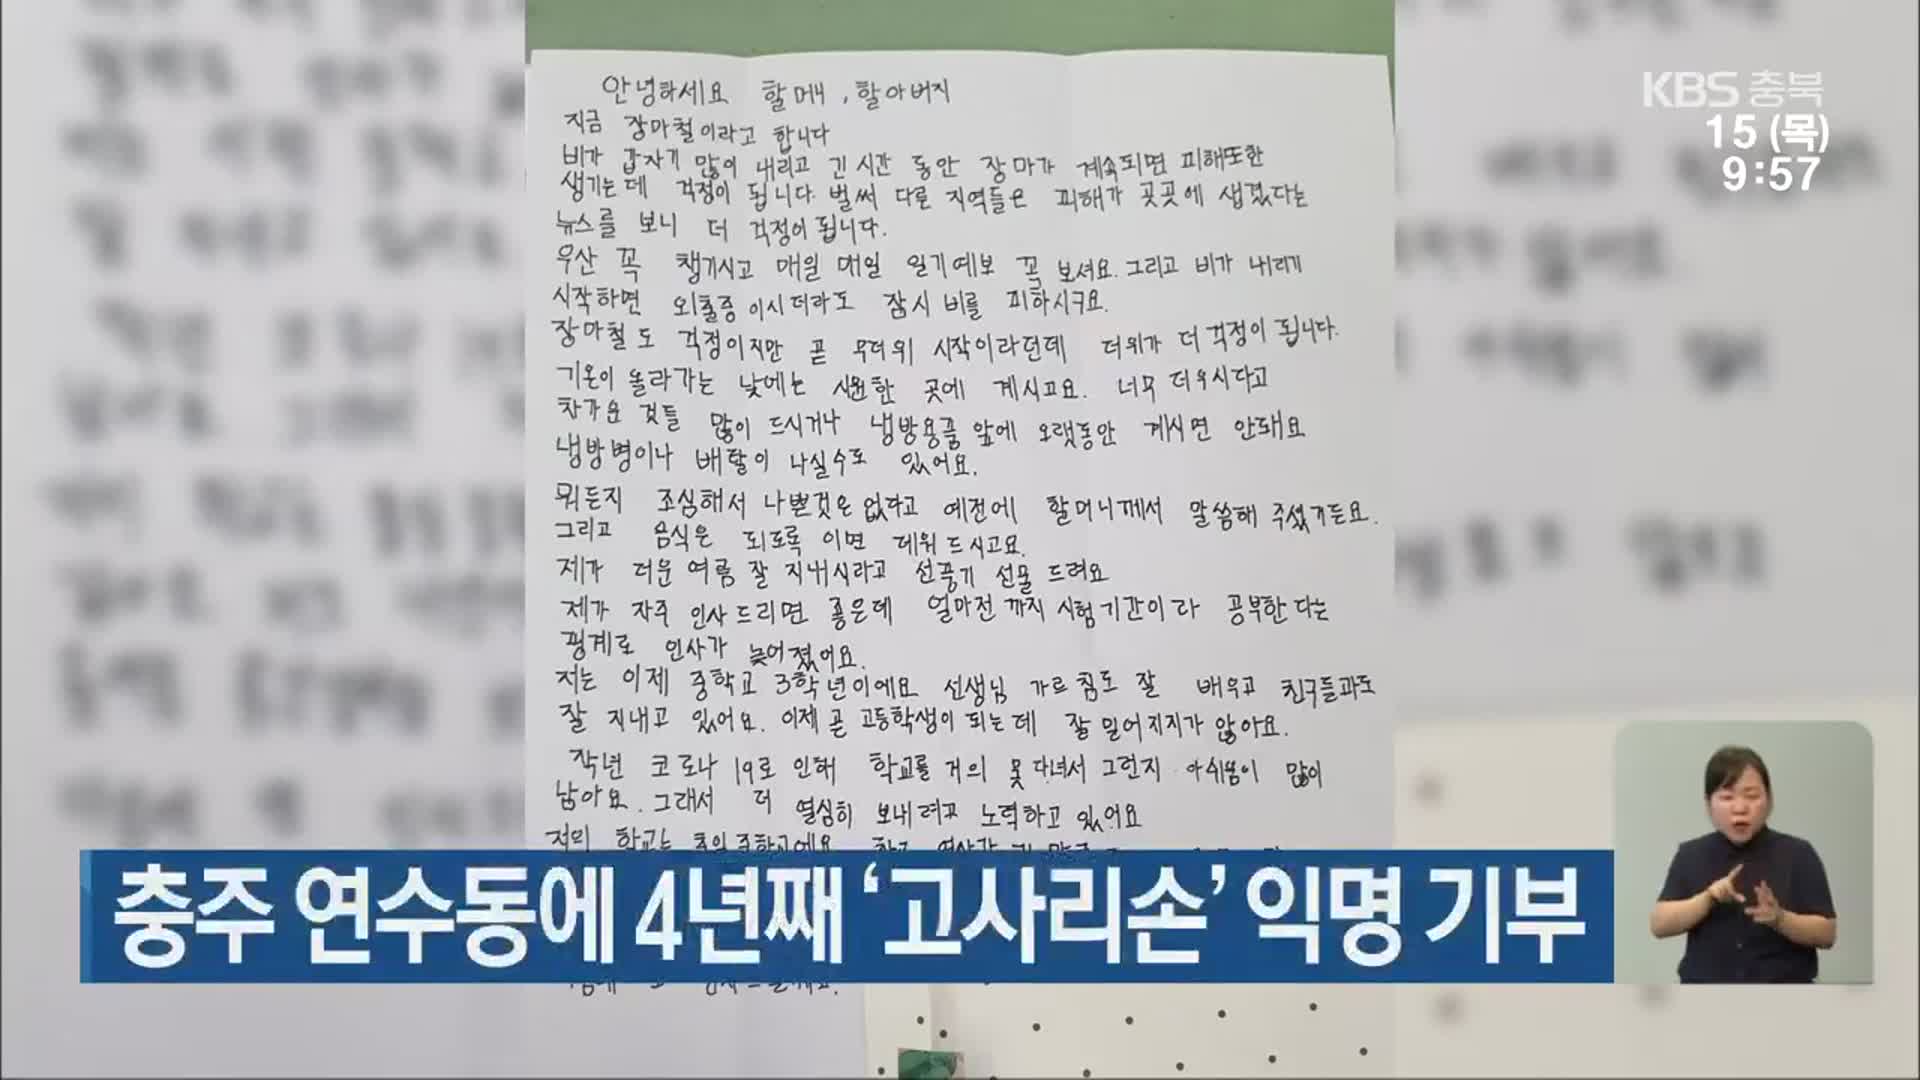 안녕하세요 할머니, 할아버지
지금 장마철이라고 합니다
비가 갑자기 많이 내리고 긴 시간 동안 장마가 계속되면 피해또한
생기는데 걱정이 됩니다. 벌써 다른 지역들은 피해가 곳곳에 생겼다는
뉴스를 보니 더 걱정이 됩니다.
우산 꼭 챙기시고 매일 매일 일기예보 꼭 보셔요. 그리고 비가 내리기
시작하면 외출중 이시더라도 잠시 비를 피하시구요.
장마철도 걱정이지만 곧 무더위 시작이라던데 더위가 더 걱정이 됩니다.
기온이 올라가는 낮에는 시원한 곳에 계시고요. 너무 더우시다고
차가운 것들 많이 드시거나 냉방용품 앞에 오랫동안 계시면 안돼요
냉방병이나 배탈이 나실수도 있어요.
뭐든지 조심해서 나쁜것은 없다고 예전에 할머니께서 말씀해 주셨거든요.
그리고 음식은 되도록 이면 데워 드시고요.
제가 더운 여름 잘 지내시라고 선풍기 선물 드려요
제가 자주 인사드리면 좋은데 얼마전 까지 시험기간이라 공부한다는
핑계로 인사가 늦어졌어요.
저는 이제 중학교 3학년이에요 선생님 가르침도 잘 배우고 친구들과도
잘 지내고 있어요. 이제 곧 고등학생이 되는데 잘 믿어지지가 않아요.
작년 코로나 19로 인해 학교를 거의 못 다녀서 그런지 아쉬움이 많이
남아요. 그래서 더 열심히 보내려고 노력하고 있어요
저의 학교는
KBS 충북
15 (목)
9:57
충주 연수동에 4년째 ‘고사리손’ 익명 기부